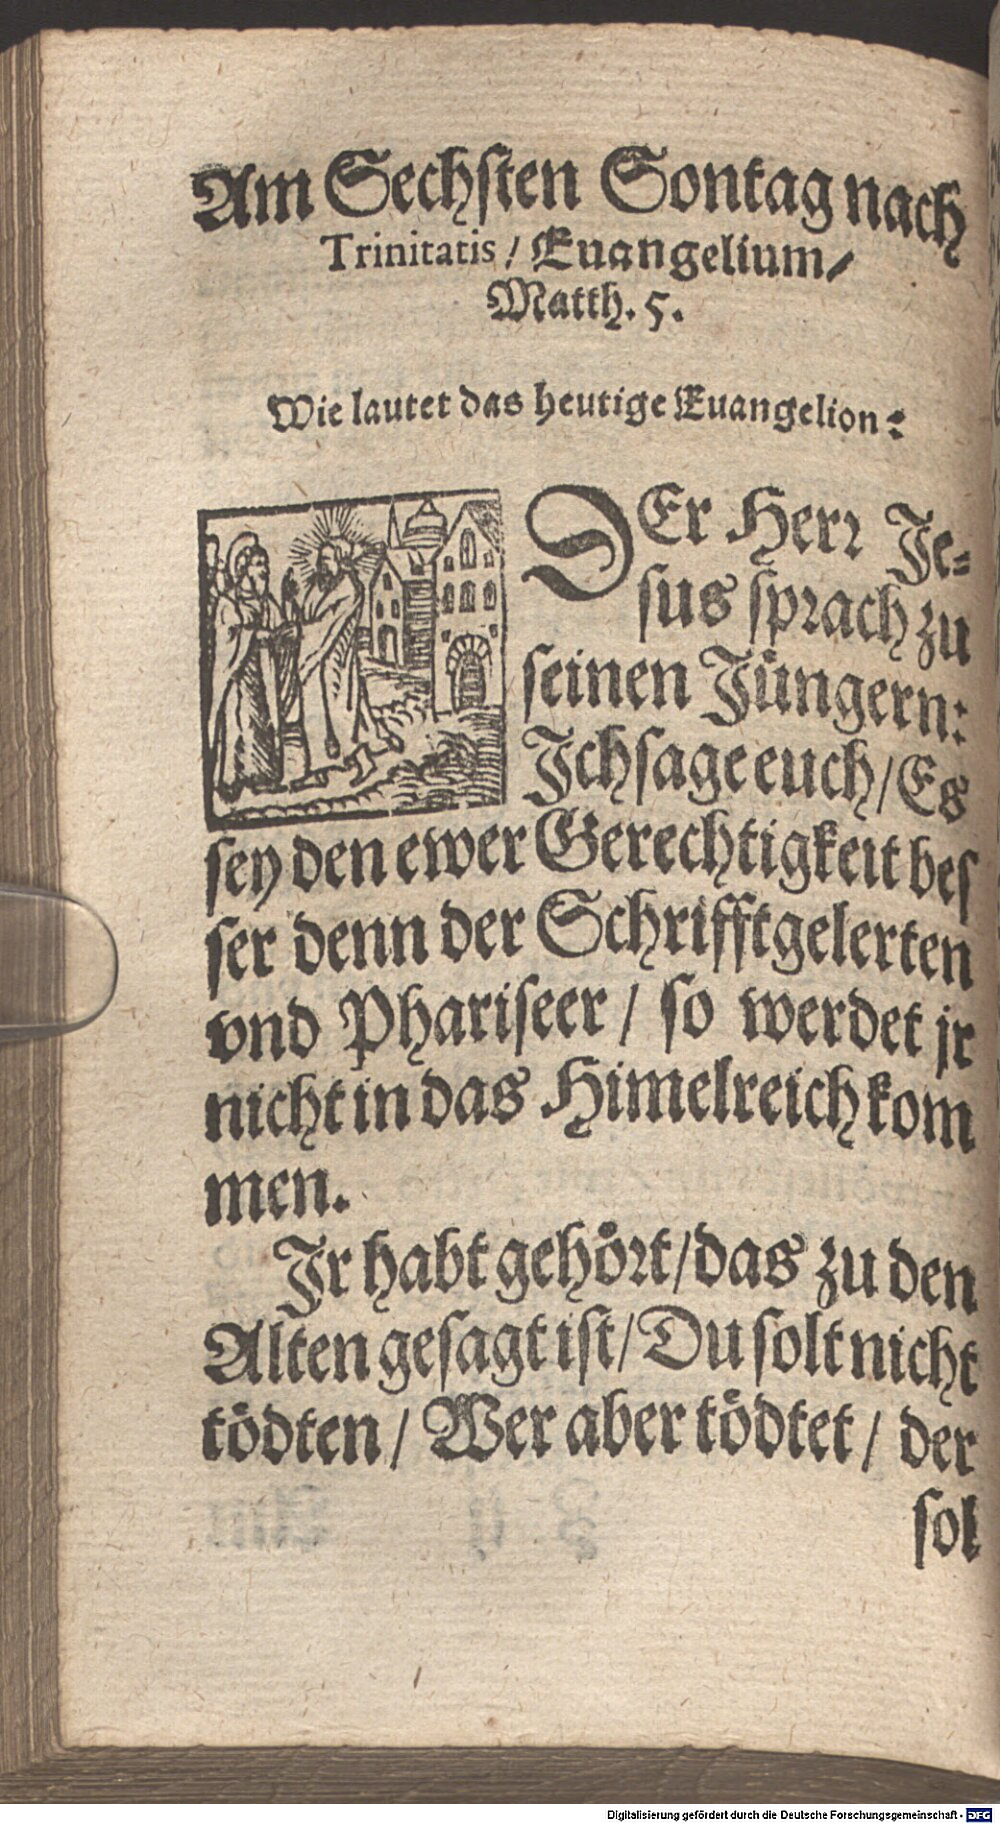 Am Sechſten Sontag nach
Trinitatis / Euangelium /
Matth. 5.
Wie lautet das heutige Euangelion?
DEr Herꝛ Je-
ſus ſpꝛach zu
ſeinen Jüngern:
Ich ſage euch / Es
ſey den ewer Gerechtigkeit beſ
ſer denn der Schrifftgelerten
vnd Phariſeer / ſo werdet jr
nicht in das Himelreich kom
men.
Ir habt gehöꝛt / das zu den
Alten geſagt iſt / Du ſolt nicht
tödten / Wer aber tödtet / der
ſol
Digitalisierung gefördert durch die Deutsche Forschungsgemeinschaft - DFG